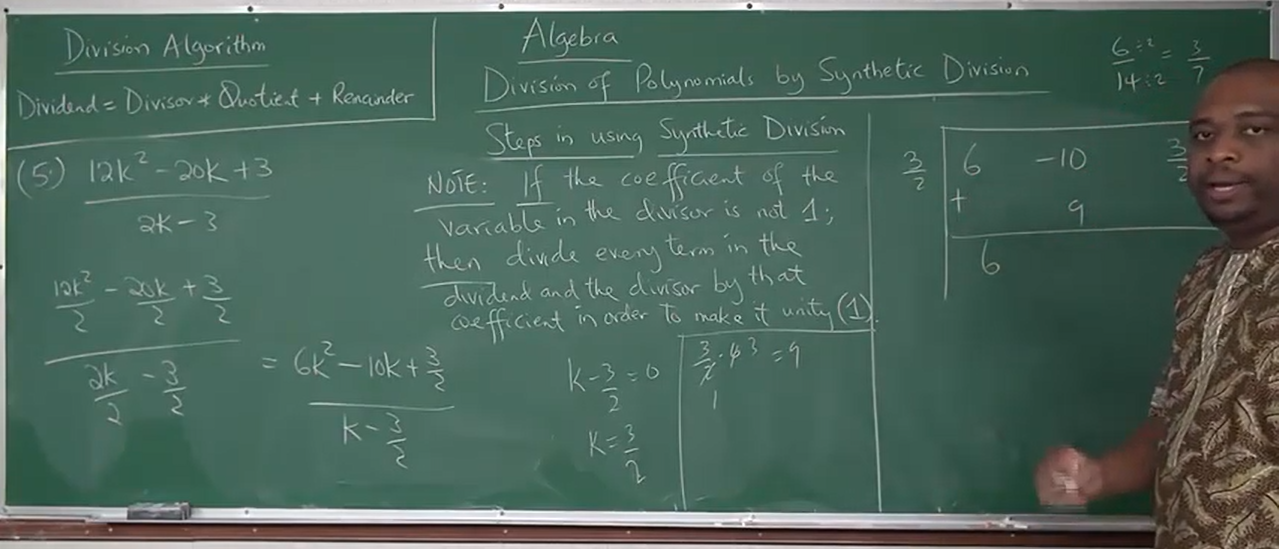 Division Algorithm
Dividend = Divisor * Quotient + Remainder
Algebra
Division of Polynomials by Synthetic Division
6 ÷2 / 14 ÷2 = 3/7
(5.) 12k² - 20k + 3
2k - 3
12k²/2 - 20k/2 + 3/2
2k/2 - 3/2
= 6k² - 10k + 3/2
k - 3/2
Steps in using Synthetic Division
NOTE: If the coefficient of the
variable in the divisor is not 1;
then divide every term in the
dividend and the divisor by that
coefficient in order to make it unity (1).
k - 3/2 = 0
k = 3/2
3/2 · 6 3 = 9
1
3/2 6 -10 3/2
+ 9
6